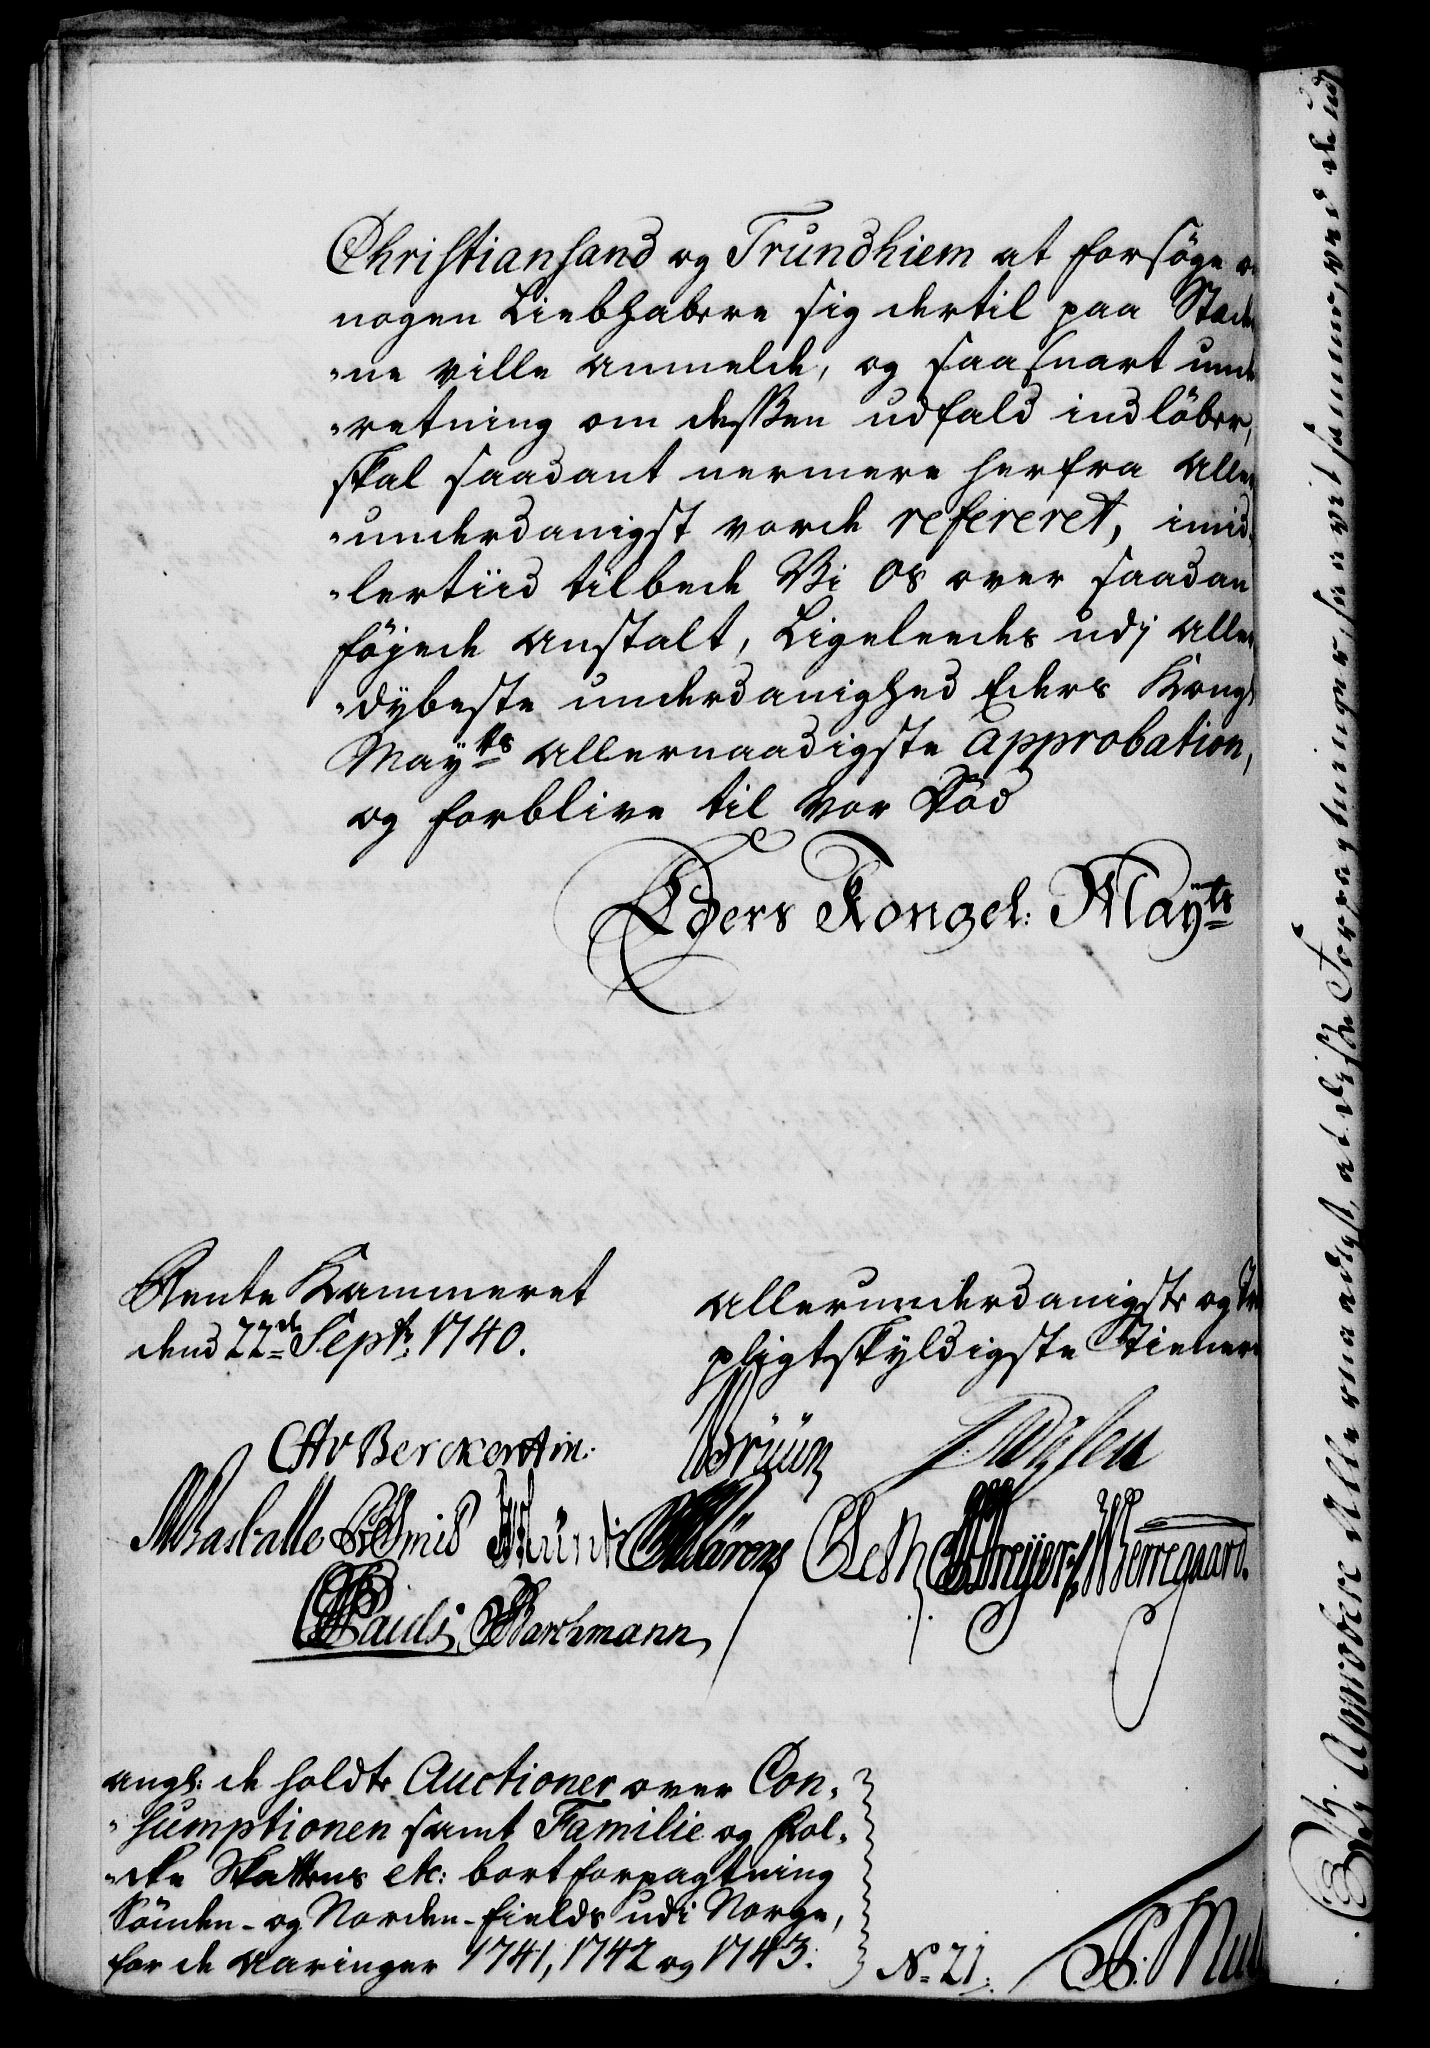 Christiansand og Trundhiem at forsöge o
nogen Liebhabere sig dertil paa Stæde
-ne ville anmelde, og saasnart unde
-retning om desßen udfald indlöber,
skal saadant nermere herfra aller
-underdanigst vorde refereret, imid
-lertiid tilbede Vi os over saadan
föyede anstalt, Ligeleedes udj aller
-dybeste underdanighed Eders Kongl
Mayts allernaadigste approbation,
og forblive til vor Död
Eders Kongel: Mayts
Rente Kammeret
dend 22de Septr: 1740.
allerunderdanigste og
pligtskyldigste Tienere
CAv Berckentin:
Bruun
Basballe Smid Kärens Oeth Meyer Wernegaard.
Pauli Barchmann
angl: de holdte Auctioner over Con-
-sumptionen samt Familie og Fol-
-cke Skattens etc: bortforpagtning
Sönden- og Norden-fields udi Norge,
for de aaringer 1741, 1742 og 1743.
No 21.
approbere Allernaadigst, at disse Forpagtninger, saavit samme, ved de udj